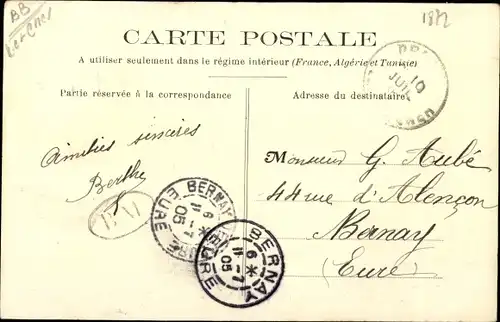 BB
1872
CARTE POSTALE
A utiliser seulement dans le régime intérieur (France, Algérie et Tunisie)
Partie réservée à la correspondance
Adresse du destinataire
10
JUIL
Amitiés sincères
Berthe
BERNAY
6 *
11 - 7
05
EURE
BERNAY
6 *
11 - 7
05
EURE
Monsieur G. Aubé
44 rue d'Alençon
Bernay
(Eure)